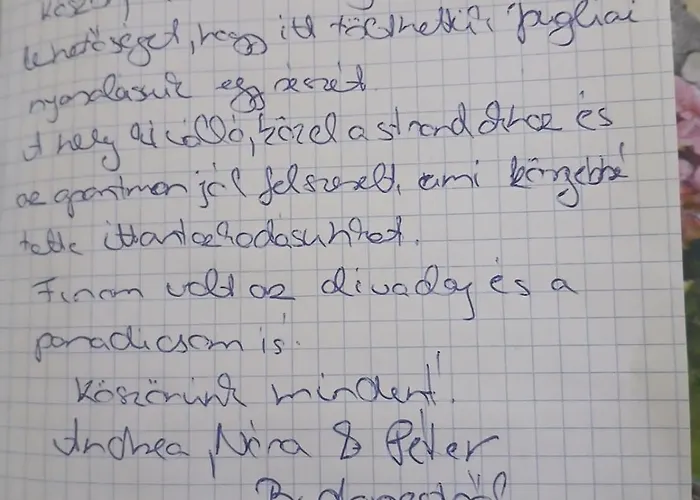 lehetőséget, hogy itt tölthettük Pugliai
nyaralásunk egy részét.
A hely kiváló, közel a strandokhoz és
az apartman jól felszerelt, ami könnyebbé
tette ittartózkodásunkat.
Finom volt az olivaolaj és a
paradicsom is.
Köszönünk mindent!
Andrea, Nóra & Péter